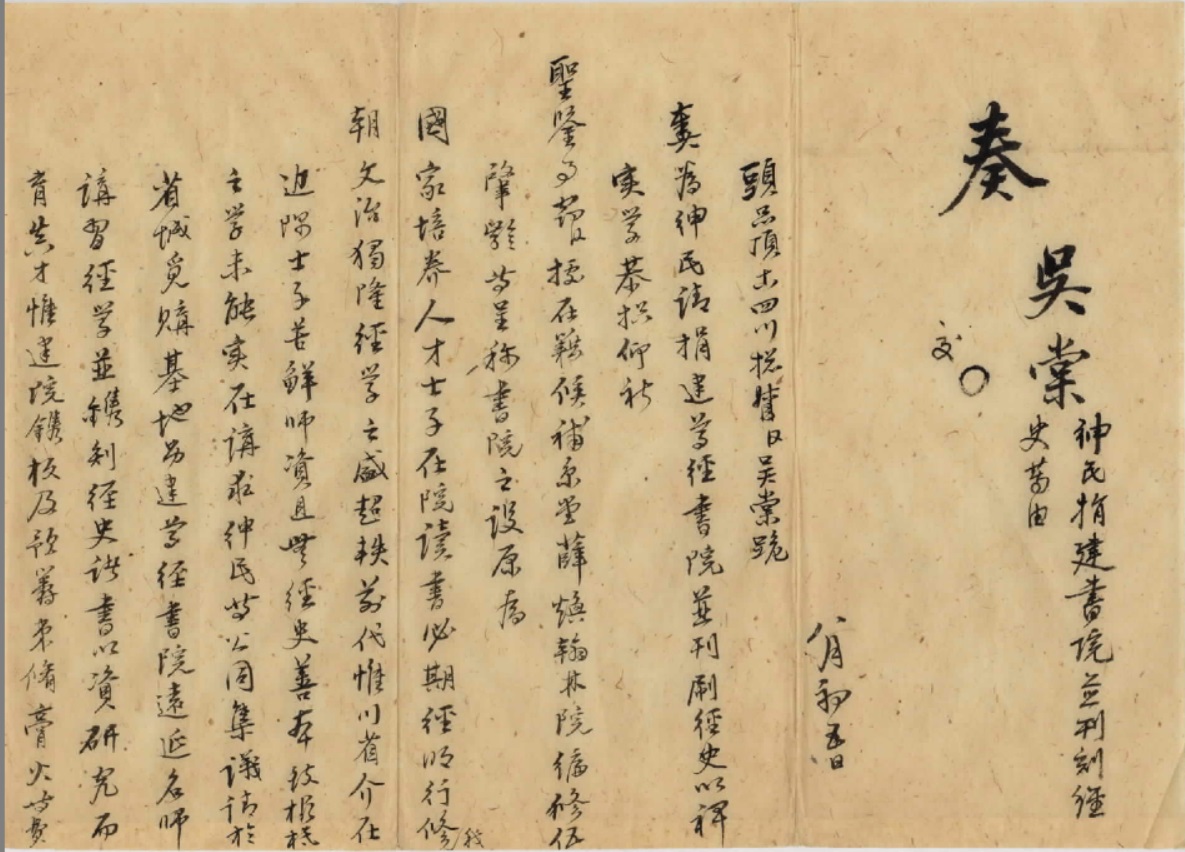 奏
吳棠
紳民捐建書院並刊刻經
史等由
交
八月初五日
頭品頂戴四川總督臣吳棠跪
奏為紳民請捐建尊經書院並刊刷經史以裨
實學恭摺仰祈
聖鑒事竊據在籍候補京堂薛煥翰林院編修伍
肇齡等呈稱書院之設原為
國家培養人才士子在院讀書必期經明行修
我
朝文治獨隆經學之盛超軼前代惟川省介在
邊隅士子苦鮮師資且無經史善本致根柢
之學未能實在講求紳民等公同集議請於
省城覓購基地另建尊經書院遠延名師
講習經學並鐫刻經史諸書以資研究而
育真才惟建院鐫板及籌束脩膏火等費